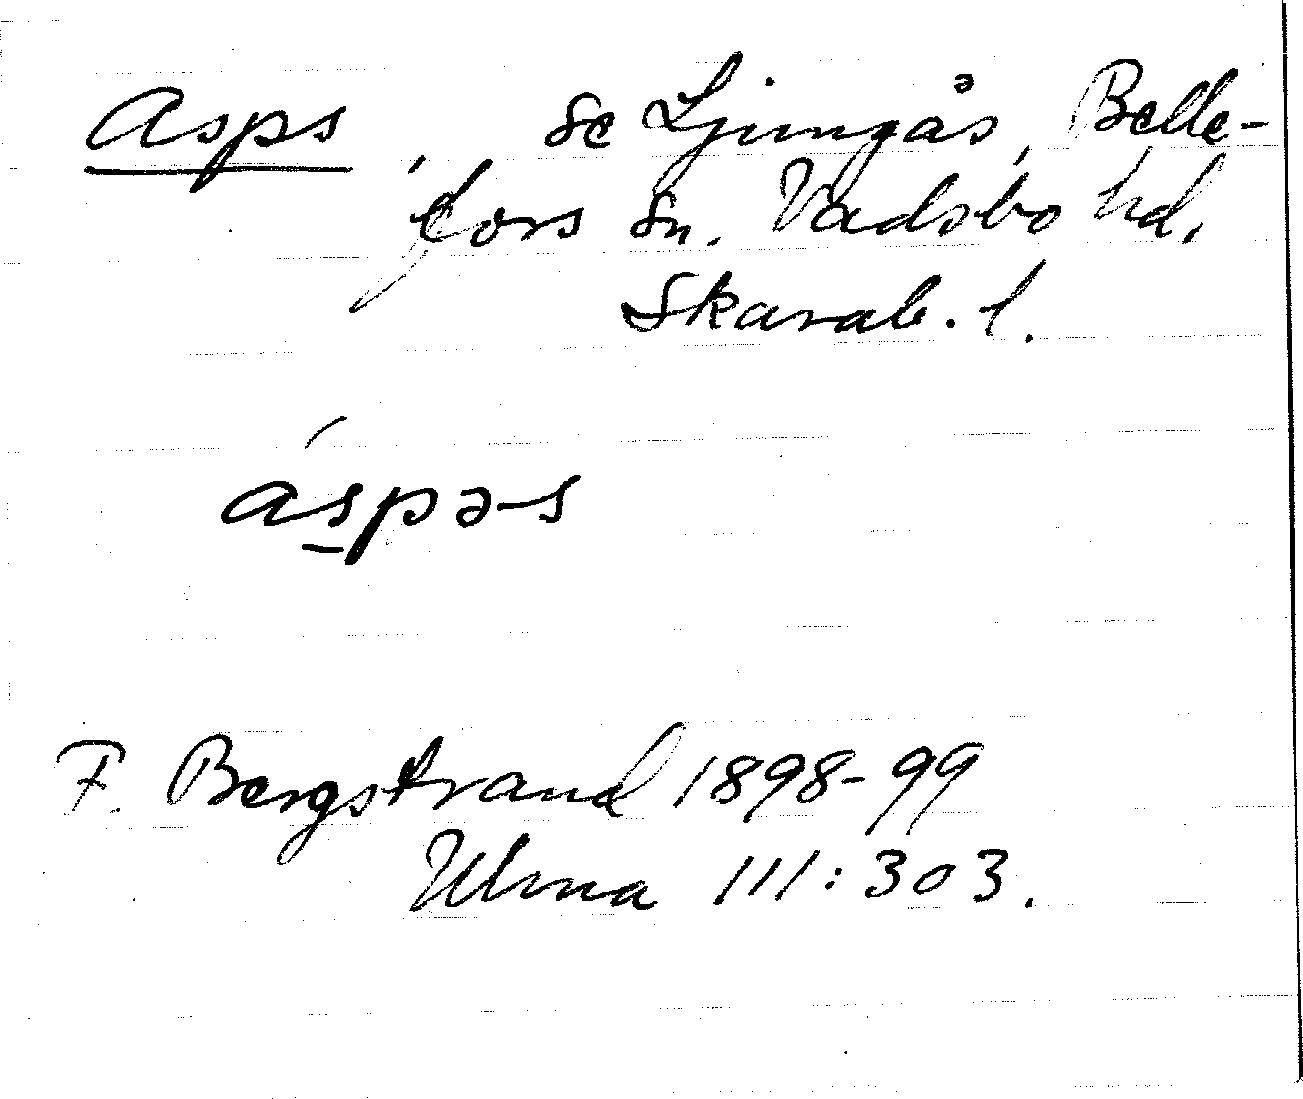 Asps, se Ljungås, Belle-
fors sn. Vadsbo hd.
Skarab. l.
áspəs
F. Bergstrand 1898-99
Ulma 111:303.